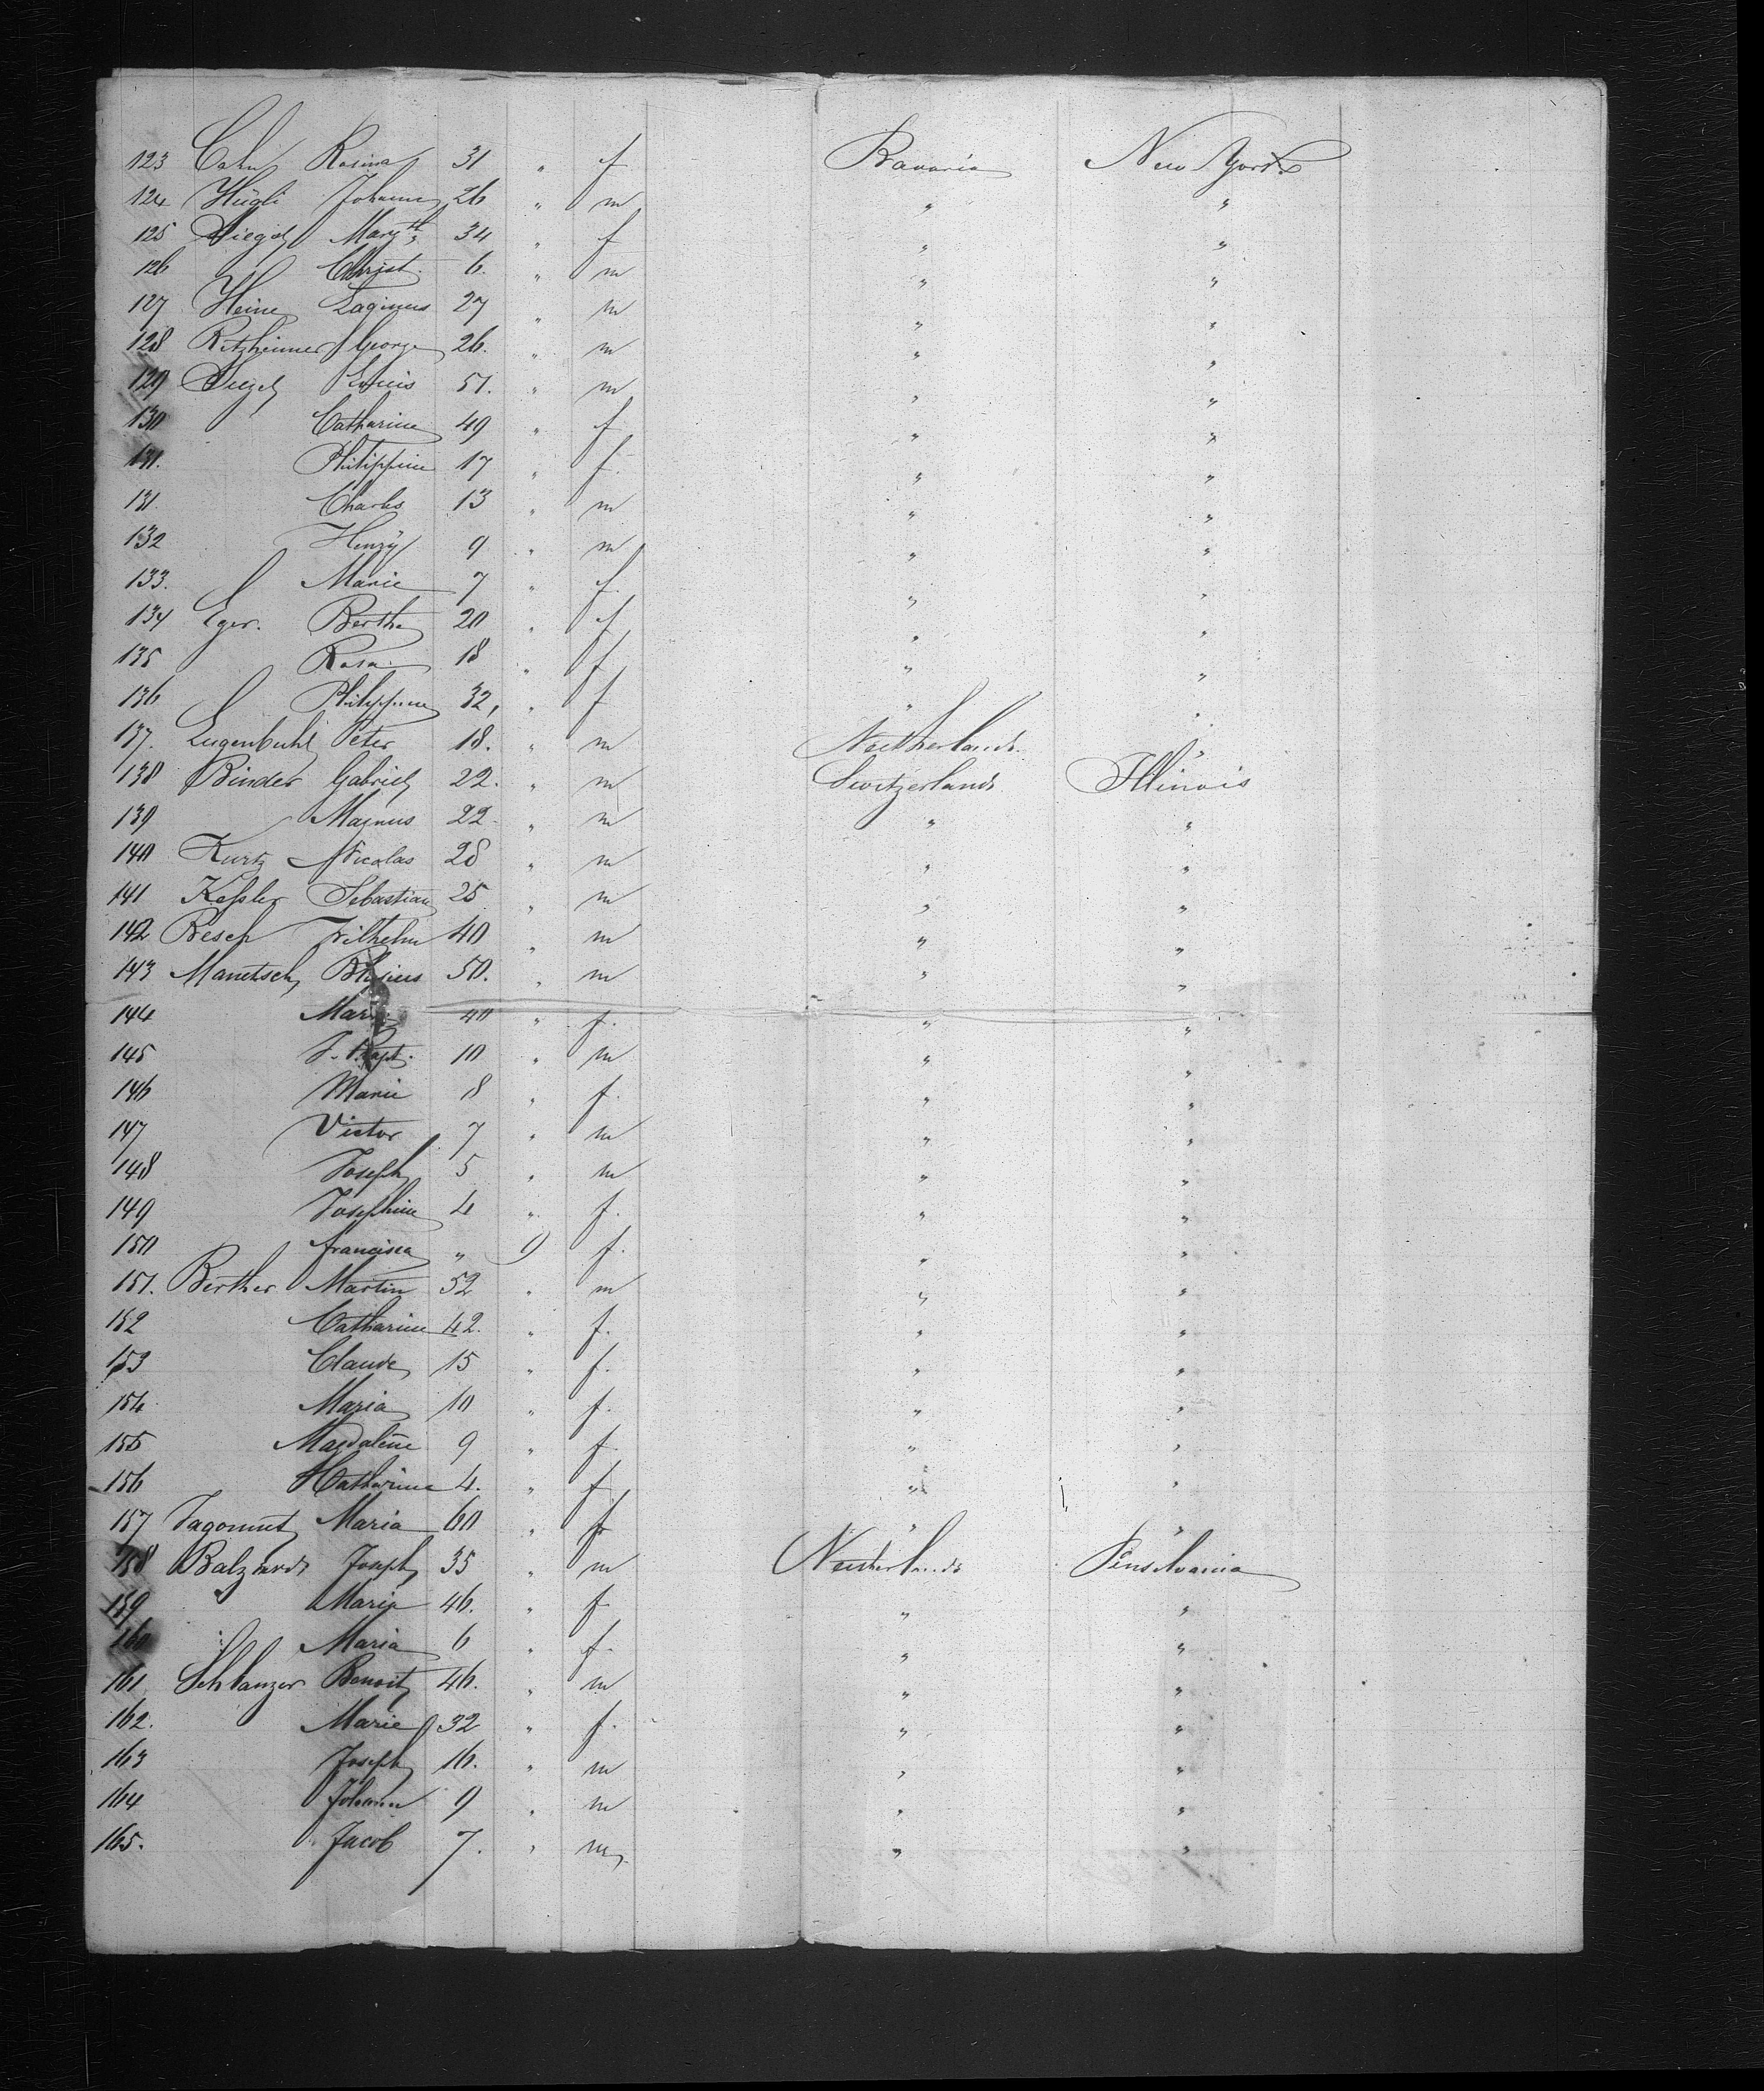 123 Cahn Rosina 31 " f Bavaria New York
124 Hügli Johann 26 " m " "
125 Siegel Margth 34 " f " "
126 Christ. 6. " m " "
127 Heine 27 " m " "
128 Ritzheimer George 26. " m " "
129 Siegel Louis 51. " m " "
130 Catharine 49 " f " "
131. Philippine 17 " f. " "
131. Charles 13 " m " "
132 Henry 9 " m " "
133. Marie 7 " f. " "
134 Eger. Bertha 20 " f " "
135 Rosa 18 " f " "
136 Philippine 32, " f " "
137. Lugenbuhl Peter 18. " m Neetherlands. "
138 Binder Gabriel 22. " m Switzerlands Illinois
139 Magnus 22. " m " "
140 Kurtz Nicolas 28 " m " "
141 Keßler Sebastian 25 " m " "
142 Resch Wilhelm 40 " m " "
143 Manetsch 50. " m " "
144 40 " f. " "
145 J. Bapt. 10 " m " "
146 Marie 8 " f. " "
147 Victor 7 " m " "
148 Joseph 5 " m " "
149 Josephine 4 " f. " "
150 Francisca " 9 f. " "
151. Berther Martin 52 " m " "
152 Catharine 42. " f. " "
153 Claude 15 " f. " "
154. Maria 10 " f. " "
155 Magdalene 9 " f. " "
156 Catharine 4. " f " "
157 Jagomet Maria 60 " f " "
158 Balzardt Joseph 35 " m Neetherlands Penselvania
159 Maria 46. " f " "
160 Maria 6 " f. " "
161 Schlanzer Benoit 46. " m " "
162. Marie 32 " f. " "
163 Joseph 16. " m " "
164 Johann 9 " m " "
165. Jacob 7. " m " "